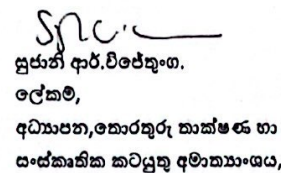 සුජානි ආර්.විජේතුංග.
ලේකම්,
අධ්‍යාපන,තොරතුරු තාක්ෂණ හා
සංස්කෘතික කටයුතු අමාත්‍යාංශය,